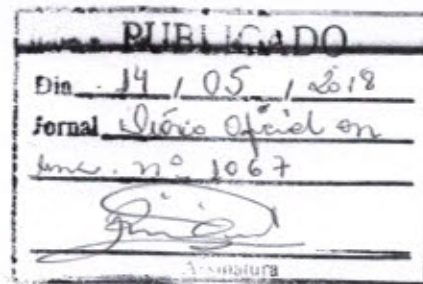 PUBLICADO
Dia 14 / 05 / 2018
Jornal Diário Oficial on
line. nº 1067
Assinatura